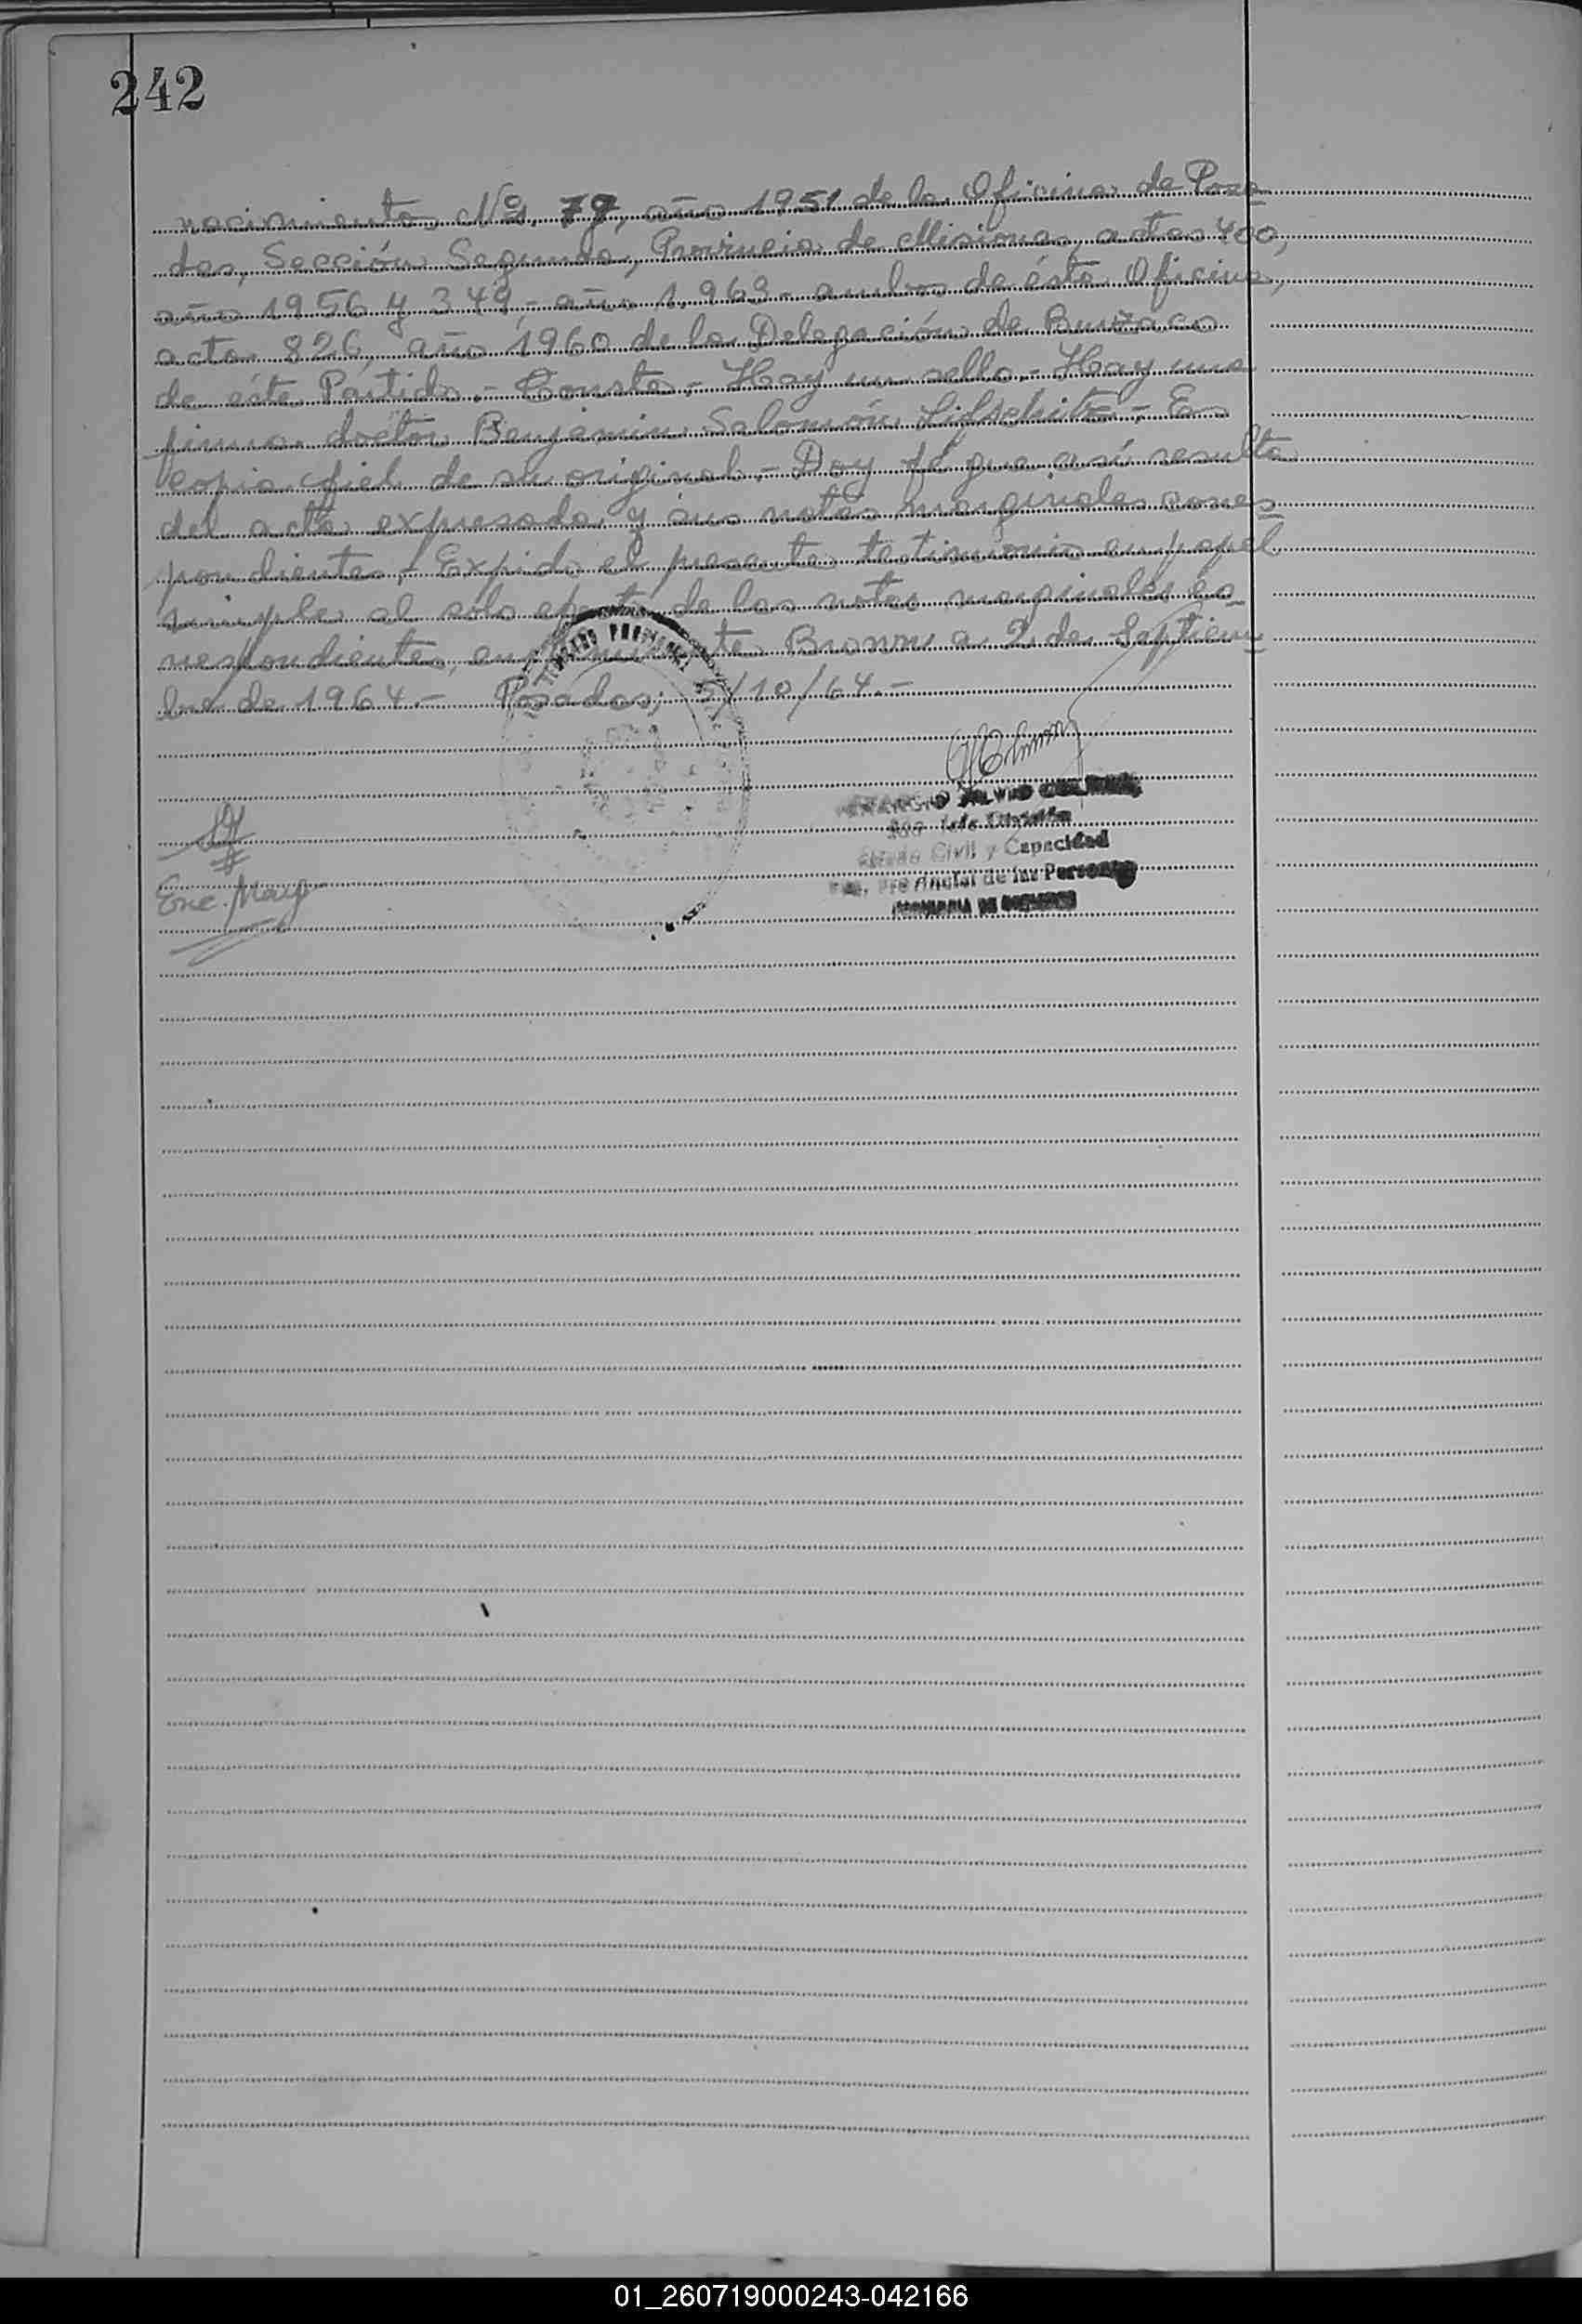 242
nacimiento Nº 79, año 1951 de la Oficina de Posa
das, Sección Segunda, Provincia de Misiones, actas 400,
año 1956 y 349,- año 1.963- ambas de ésta Oficina,
acta 826, año 1960 de la Delegación de Burzaco
de éste Partido.- Consta.- Hay un sello.- Hay una
firma doctor Benjamin Salomón Lifschitz.- Es
copia fiel de su original.- Doy fé que así resulta
del acta expresada y sus notas marginales corres
pondientes.- Expido el presente testimonio en papel
simple al sólo de las notas marginales co
rrespondientes, en Brown a 2 de Septiem
bre de 1964.- Posadas; 5/10/64.-
Civil y Capacidad
Provincial de las Personas
Enc. Mayo
01_260719000243-042166